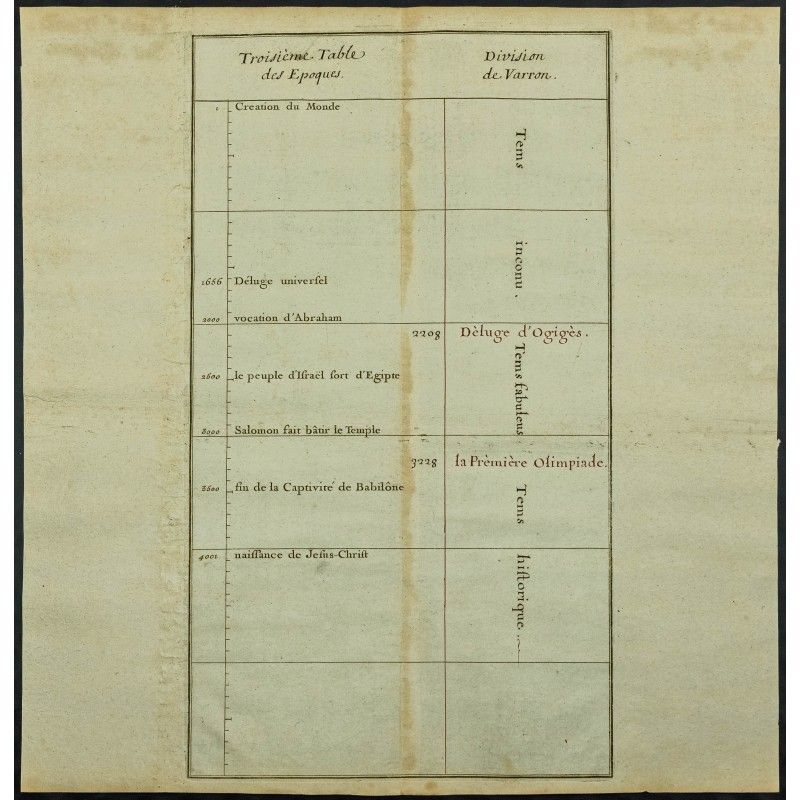 Troisième Table
des Epoques.
Division
de Varron.
1 Creation du Monde
Tems
inconu.
1656 Déluge universel
2000 vocation d'Abraham
2208 Dèluge d'Ogigès.
Tems fabuleus
2500 le peuple d'Israël sort d'Egipte
3000 Salomon fait bâtir le Temple
3228 la Prèmière Olimpiade.
3500 fin de la Captivité de Babilône
Tems
historique.
4001 naissance de Jesus-Christ